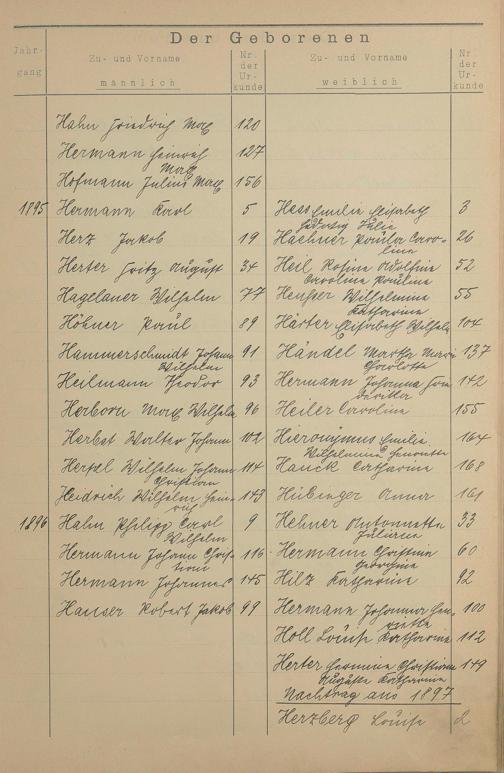 Der Geborenen
Jahr-
gang
Zu- und Vorname
männlich
Nr.
der
Ur-
kunde
Zu- und Vorname
weiblich
Nr.
der
Ur-
kunde
Hahn Friedrich Max 120
Hermann Heinrich 127
Max
Hofmann Julius Max 156
1895 Hermann Karl 5 Hess Emilie Elisabeth 3
Hedwig Julie
Herz Jakob 19 Haehner Paula Caro- 26
line
Herter Fritz August 34 Heil Rosine Adolfine 52
Caroline Pauline
Hagelauer Wilhelm 77 Heusser Wilhelmine 55
Katharine
Höhner Paul 89 Härter Elisabeth Wilhelm 104
Hammerschmidt Johann 91 Händel Martha Maria 137
Wilhelm Charlotte
Heilmann Theodor 93 Hermann Johanna 142
Herborn Max Wilhelm 96 Heiler Caroline 155
Herbst Walter Johann 102 Hieronymus Emilie 164
Wilhelmine Henriette
Hertel Wilhelm Johann 114 Hauck Catharine 168
Christian
Heidrich Wilhelm Hein- 143 Hübinger Anna 161
rich
1896 Hahn Philipp Carl 9 Hehner Antonnette 33
Wilhelm Juliane
Hermann Johann Chris- 116 Hermann Christine 60
tian Georgine
Hermann Johannes 145 Hilz Katharine 92
Hauser Robert Jakob 99 Hermann Johanna Hen- 100
riette
Holl Louise Katharine 112
Herter Hermine Christiane 149
Auguste Katharine
Nachtrag aus 1897
Herzberg Louise 2